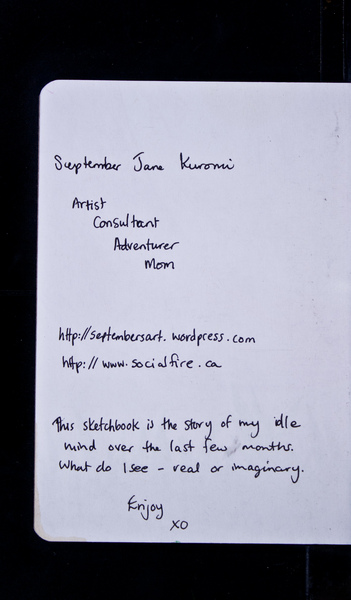 September Jane Kuromi
Artist
Consultant
Adventurer
Mom
http://septembersart.wordpress.com
http://www.socialfire.ca
This sketchbook is the story of my idle
mind over the last few months.
What do I see - real or imaginary.
Enjoy
XO